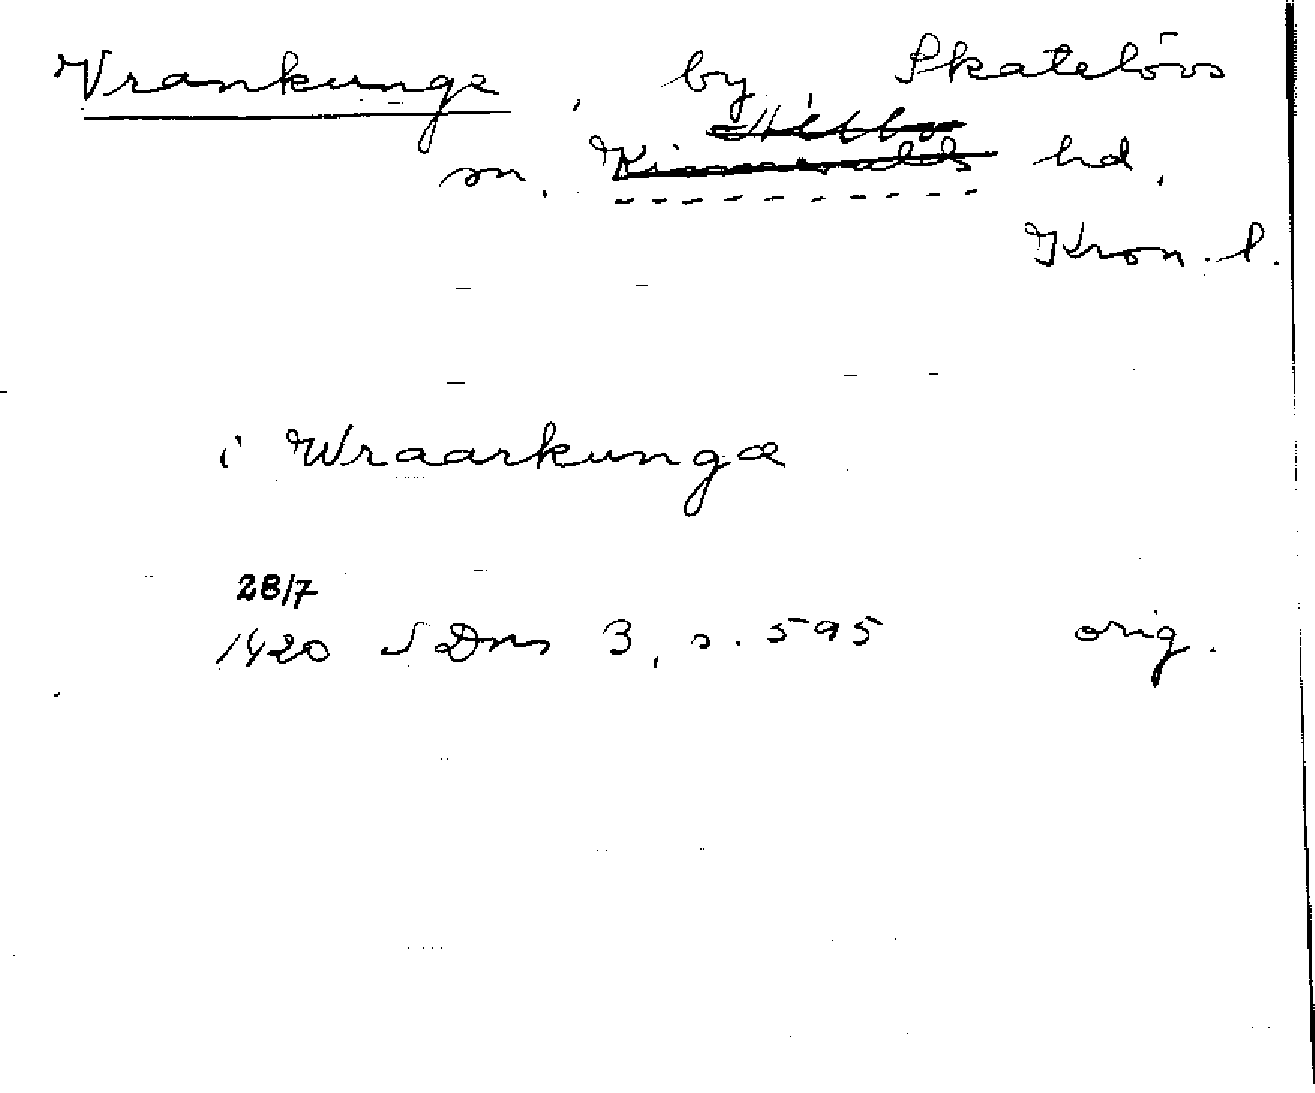 Vrankunge, by Skatelövs
Allbo
sn. Kinnevalds hd.
Kron. l.
i Wraarkungæ
28/7
1420 SDns 3, s. 595 orig.